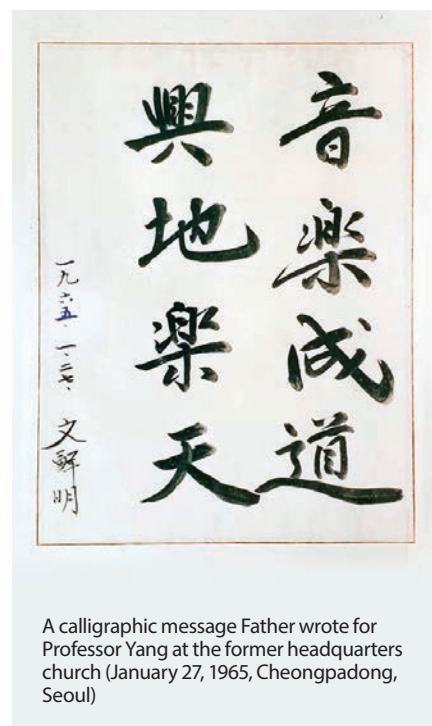 音楽成道
興地楽天
一九六五、一、二七、
文鮮明
A calligraphic message Father wrote for
Professor Yang at the former headquarters
church (January 27, 1965, Cheongpadong,
Seoul)